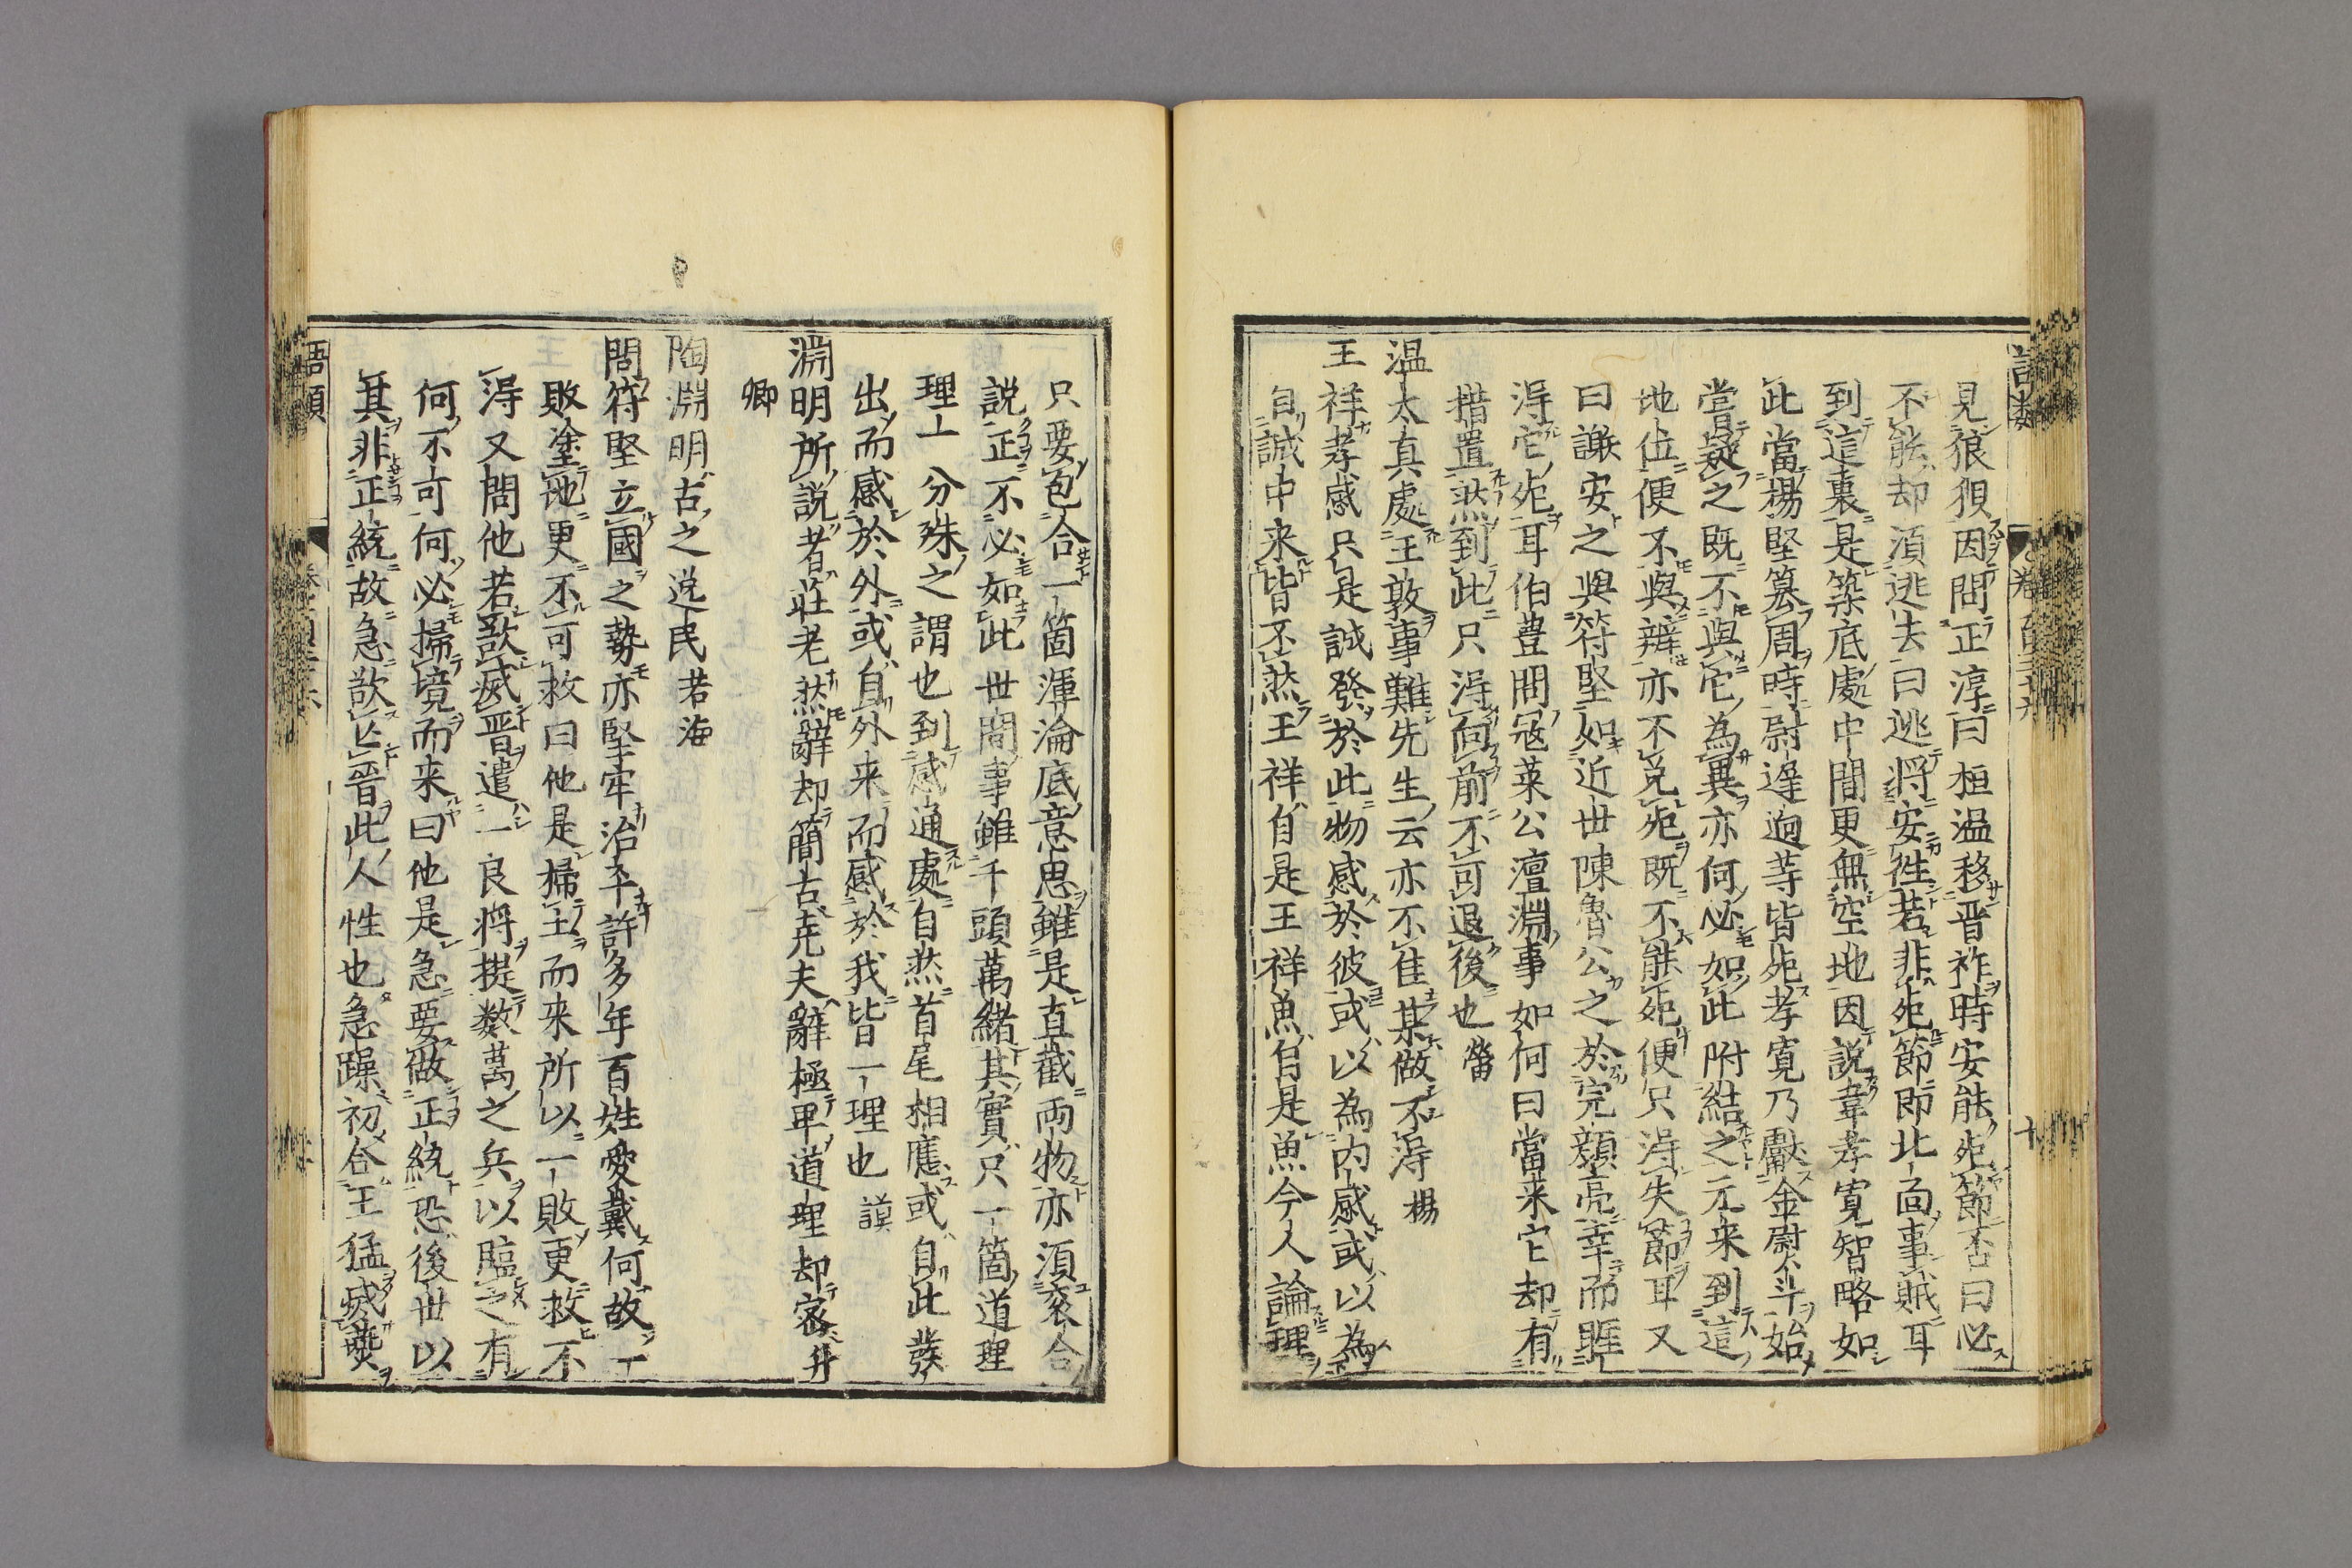 見狼狽因問正淳曰桓温移晋祚時安能死節否曰必
不能却須逃去曰逃將安往若非死節即北面事賊耳
到這裏是築底處中間更無空地因說韋孝寬智略如
此當楊堅篡周時尉遲迥等皆死孝寬乃獻金熨斗始
嘗疑之既不與它為異亦何必如此附結之元来到這
地位便不與辨亦不免死既不能死便只得失節耳又
曰謝安之與符堅如近世陳魯公之於完顏亮幸而睚
得它死耳伯豊問冦莱公澶淵事如何曰當来它却有
措置然到此只得向前不可退後也㽦
温太真處王敦事難先生云亦不佳某做不得揚
王祥孝感只是誠發於此物感於彼或以為内感或以為
自誠中来皆不然王祥自是王祥魚自是魚今人論理
只要包合一箇渾淪底意思雖是直截両物亦須衮合
説正不必如此世間事雖千頭萬緒其實只一箇道理
理一分殊之謂也到感通處自然首尾相應或自此發
出而感於外或自外来而感於我皆一理也謨
淵明所説者莊老然辭却簡古尭夫辭極卑道理却密升
卿
陶淵明古之逸民若海
問符堅立國之勢亦堅牢治平許多年百姓愛戴何故一
敗塗地更不可救曰他是掃土而来所以一敗更救不
得又問他若欲滅晋遣一良将提数萬之兵以臨之有
何不可何必掃境而来曰他是急要做正統恐後世以
其非正統故急欲亡晋此人性也急躁初令王猛滅燕
語類
十